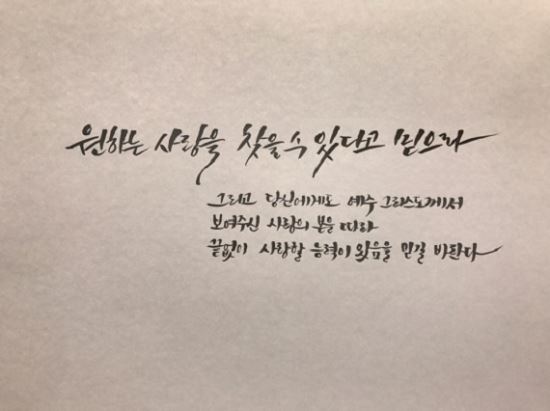 원하는 사랑을 찾을 수 있다고 믿으라
그리고 당신에게도 예수 그리스도께서
보여주신 사랑의 본을 따라
끝없이 사랑할 능력이 있음을 믿길 바란다